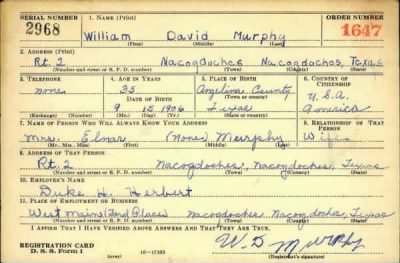 SERIAL NUMBER 1. NAME (Print) ORDER NUMBER
2968 William David Murphy 1647
(First) (Middle) (Last)
2. ADDRESS (Print)
Rt. 2 Nacogdoches Nacogdoches, Texas
(Number and street or R. F. D. number) (Town) (County) (State)
3. TELEPHONE 4. AGE IN YEARS 5. PLACE OF BIRTH 6. COUNTRY OF CITIZENSHIP
none 35 Angelina County U.S.A.
DATE OF BIRTH (Town or county)
9 15 1906 Texas America
(Exchange) (Number) (Mo.) (Day) (Yr.) (State or country)
7. NAME OF PERSON WHO WILL ALWAYS KNOW YOUR ADDRESS 8. RELATIONSHIP OF THAT PERSON
Mrs. Elnar (None) Murphy Wife
(Mr., Mrs., Miss) (First) (Middle) (Last)
9. ADDRESS OF THAT PERSON
Rt. 2 Nacogdoches, Nacogdoches, Texas
(Number and street or R. F. D. number) (Town) (County) (State)
10. EMPLOYER'S NAME
Duke H. Herbert
11. PLACE OF EMPLOYMENT OR BUSINESS
West Main (Ford Place) Nacogdoches, Nacogdoches, Texas
(Number and street or R. F. D. number) (Town) (County) (State)
I AFFIRM THAT I HAVE VERIFIED ABOVE ANSWERS AND THAT THEY ARE TRUE.
W. D Murphy
REGISTRATION CARD
D. S. S. Form 1 (over) (Registrant's signature)